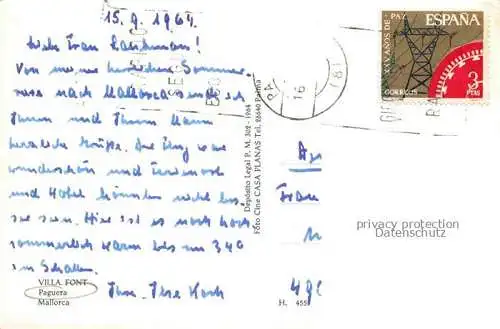 15.9.1964
Liebe Frau Lachmann!
Von meiner herrlichen Sommer
reise nach Mallorca sende ich
Ihnen und Ihrem Mann
herzliche Grüße. Der Flug war
wunderschön und
und Hotel könnten nicht bes
ser sein. Hier ist es noch hoch
sommerlich warm bis zu 34°
im Schatten.
Ihre Ilse Koch
VILLA FONT
Paguera
Mallorca
Depósito Legal P. M. 302 - 1964
Foto Cine CASA PLANAS Tel. 26640 Palma
H. 455
XXV AÑOS DE PAZ
ESPAÑA
CORREOS
3
PTAS
Frau
privacy protection
Datenschutz